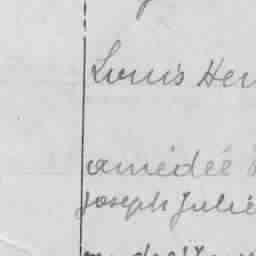 Louis Hen
amédéé
Joseph Julie